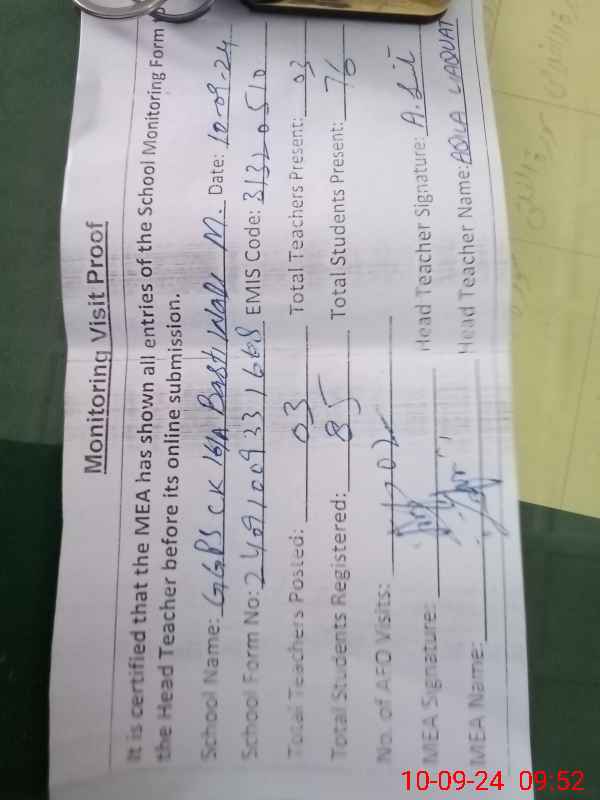 Monitoring Visit Proof
It is certified that the MEA has shown all entries of the School Monitoring Form
the Head Teacher before its online submission.
School Name: GGPS CK 16/A Basti Wala M. Date: 10-09-24
School Form No: EMIS Code: 31320510
Total Teachers Posted: 03 Total Teachers Present: 03
Total Students Registered: 85 Total Students Present: 76
No. of AFO Visits: 02
MEA Signature: Head Teacher Signature:
MEA Name: Head Teacher Name: AQILA LIAQUAT
10-09-24 09:52